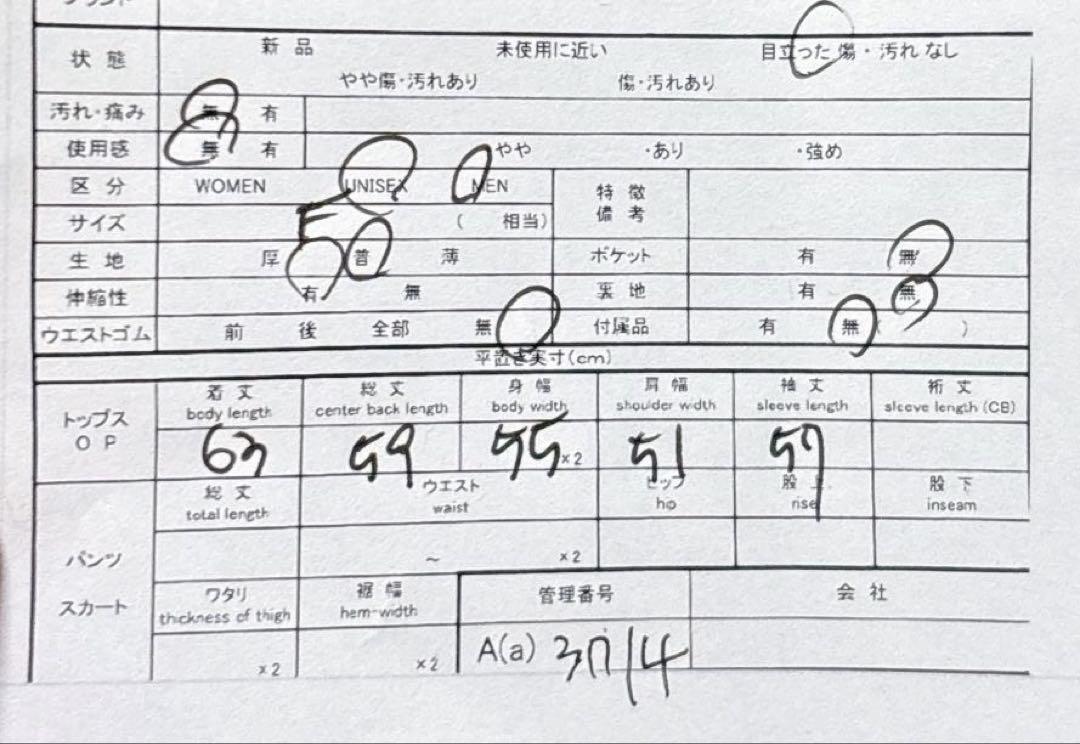 状態 新品 未使用に近い 目立った傷・汚れなし
やや傷・汚れあり 傷・汚れあり
汚れ・痛み 無 有
使用感 無 有 やや ・あり ・強め
区分 WOMEN UNISEX MEN 特徴
備考
サイズ F ( 相当)
生地 厚 普 薄 ポケット 有 無
伸縮性 有 無 裏地 有 無
ウエストゴム 前 後 全部 無 付属品 有 無 ( )
平置き実寸(cm)
トップス
OP
着丈 総丈 身幅 肩幅 袖丈 裄丈
body length center back length body width shoulder width sleeve length sleeve length (CB)
63 59 55 ×2 51 57
総丈 ウエスト ヒップ 股上 股下
total length waist hip rise inseam
パンツ ～ ×2
スカート
ワタリ 裾幅 管理番号 会社
thickness of thigh hem-width
×2 ×2 A(a)